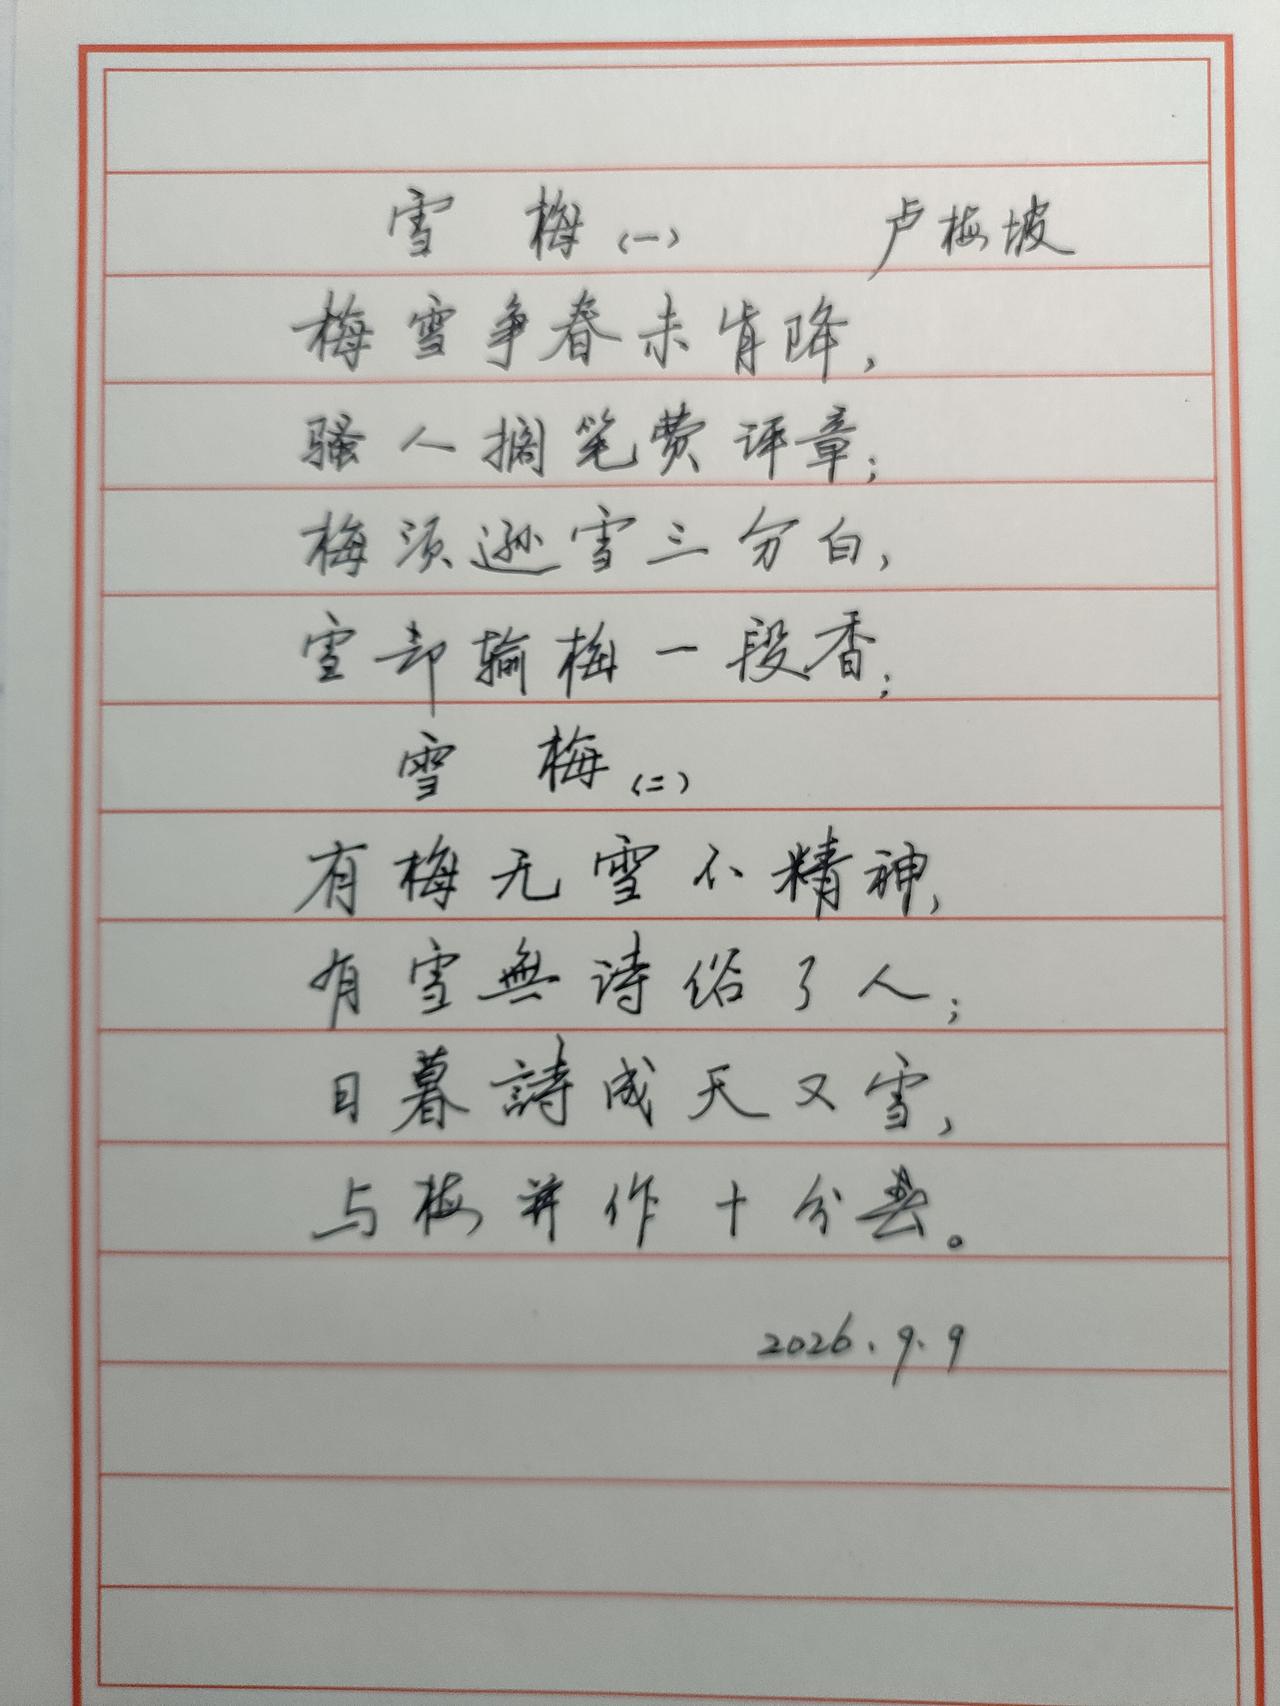 雪梅(一) 卢梅坡
梅雪争春未肯降,
骚人搁笔费评章;
梅须逊雪三分白,
雪却输梅一段香;
雪梅(二)
有梅无雪不精神,
有雪無诗俗了人;
日暮詩成天又雪,
与梅并作十分春。
2026.9.9